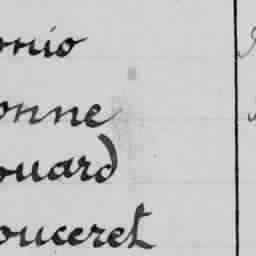 onio
onne
ouard
ouceret